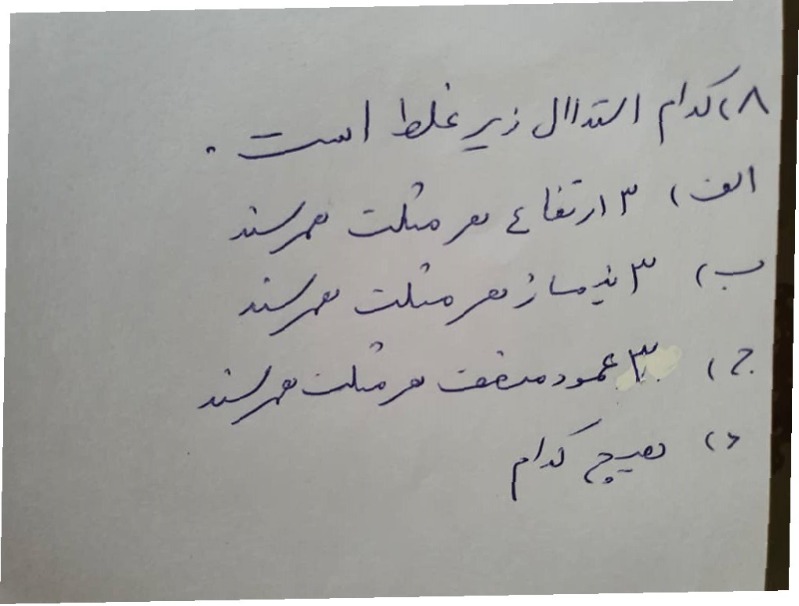 ۸) کدام استدالل زیر غلط است .
الف) ۳ ارتفاع هر مثلث همرسند
ب) ۳ نیمساز هر مثلث همرسند
ج) ۳ عمود منصف هر مثلث همرسند
د) هیچ کدام